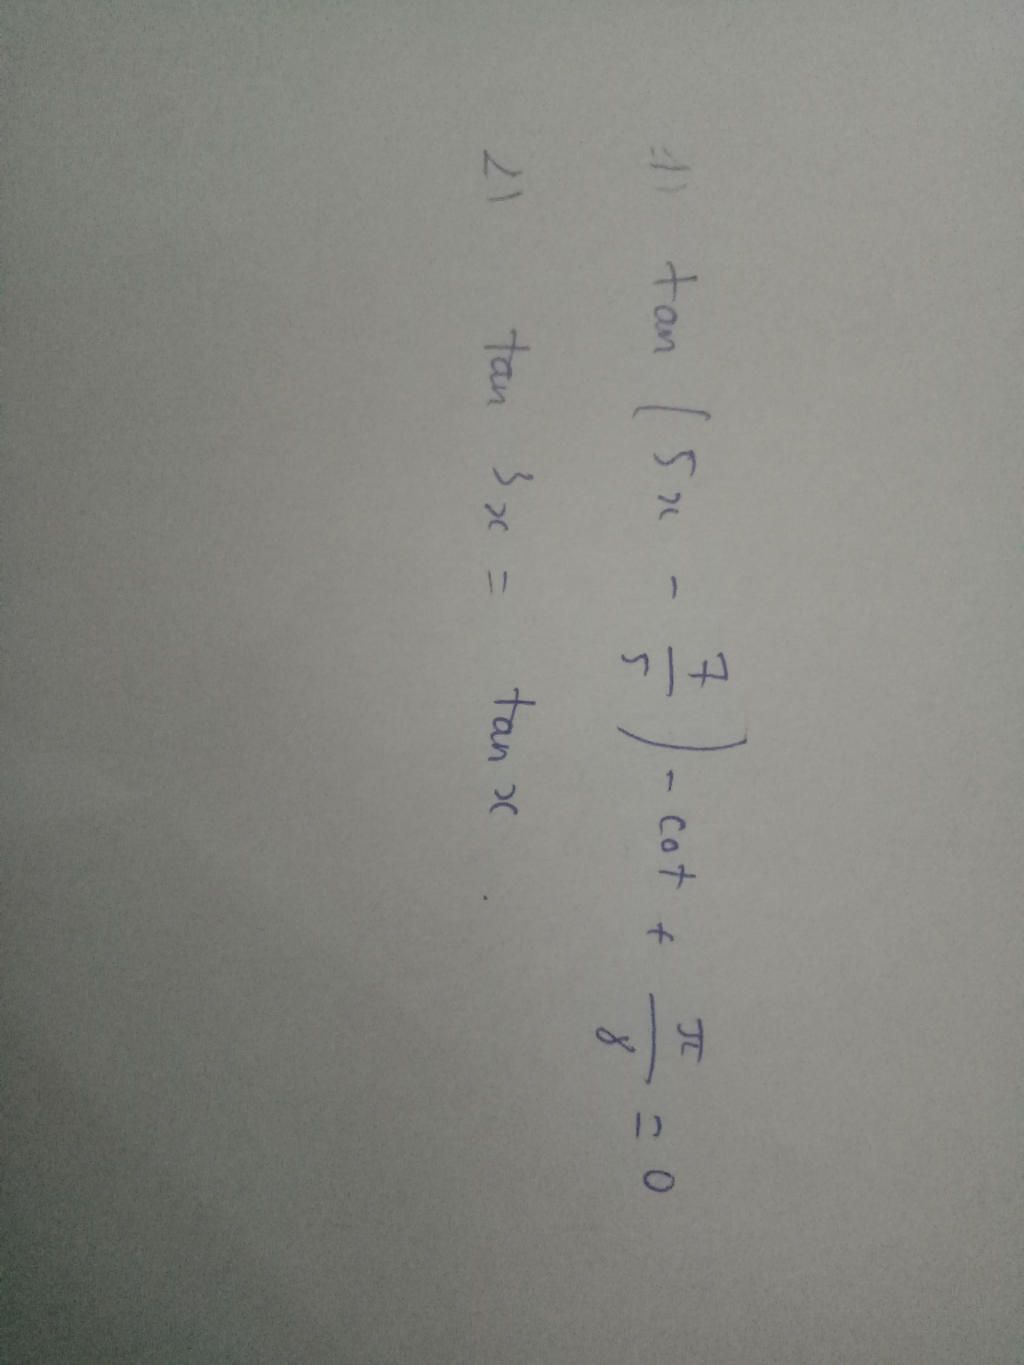 1) tan (5x - 7/5) - cot + π/8 = 0
2) tan 3x = tan x.